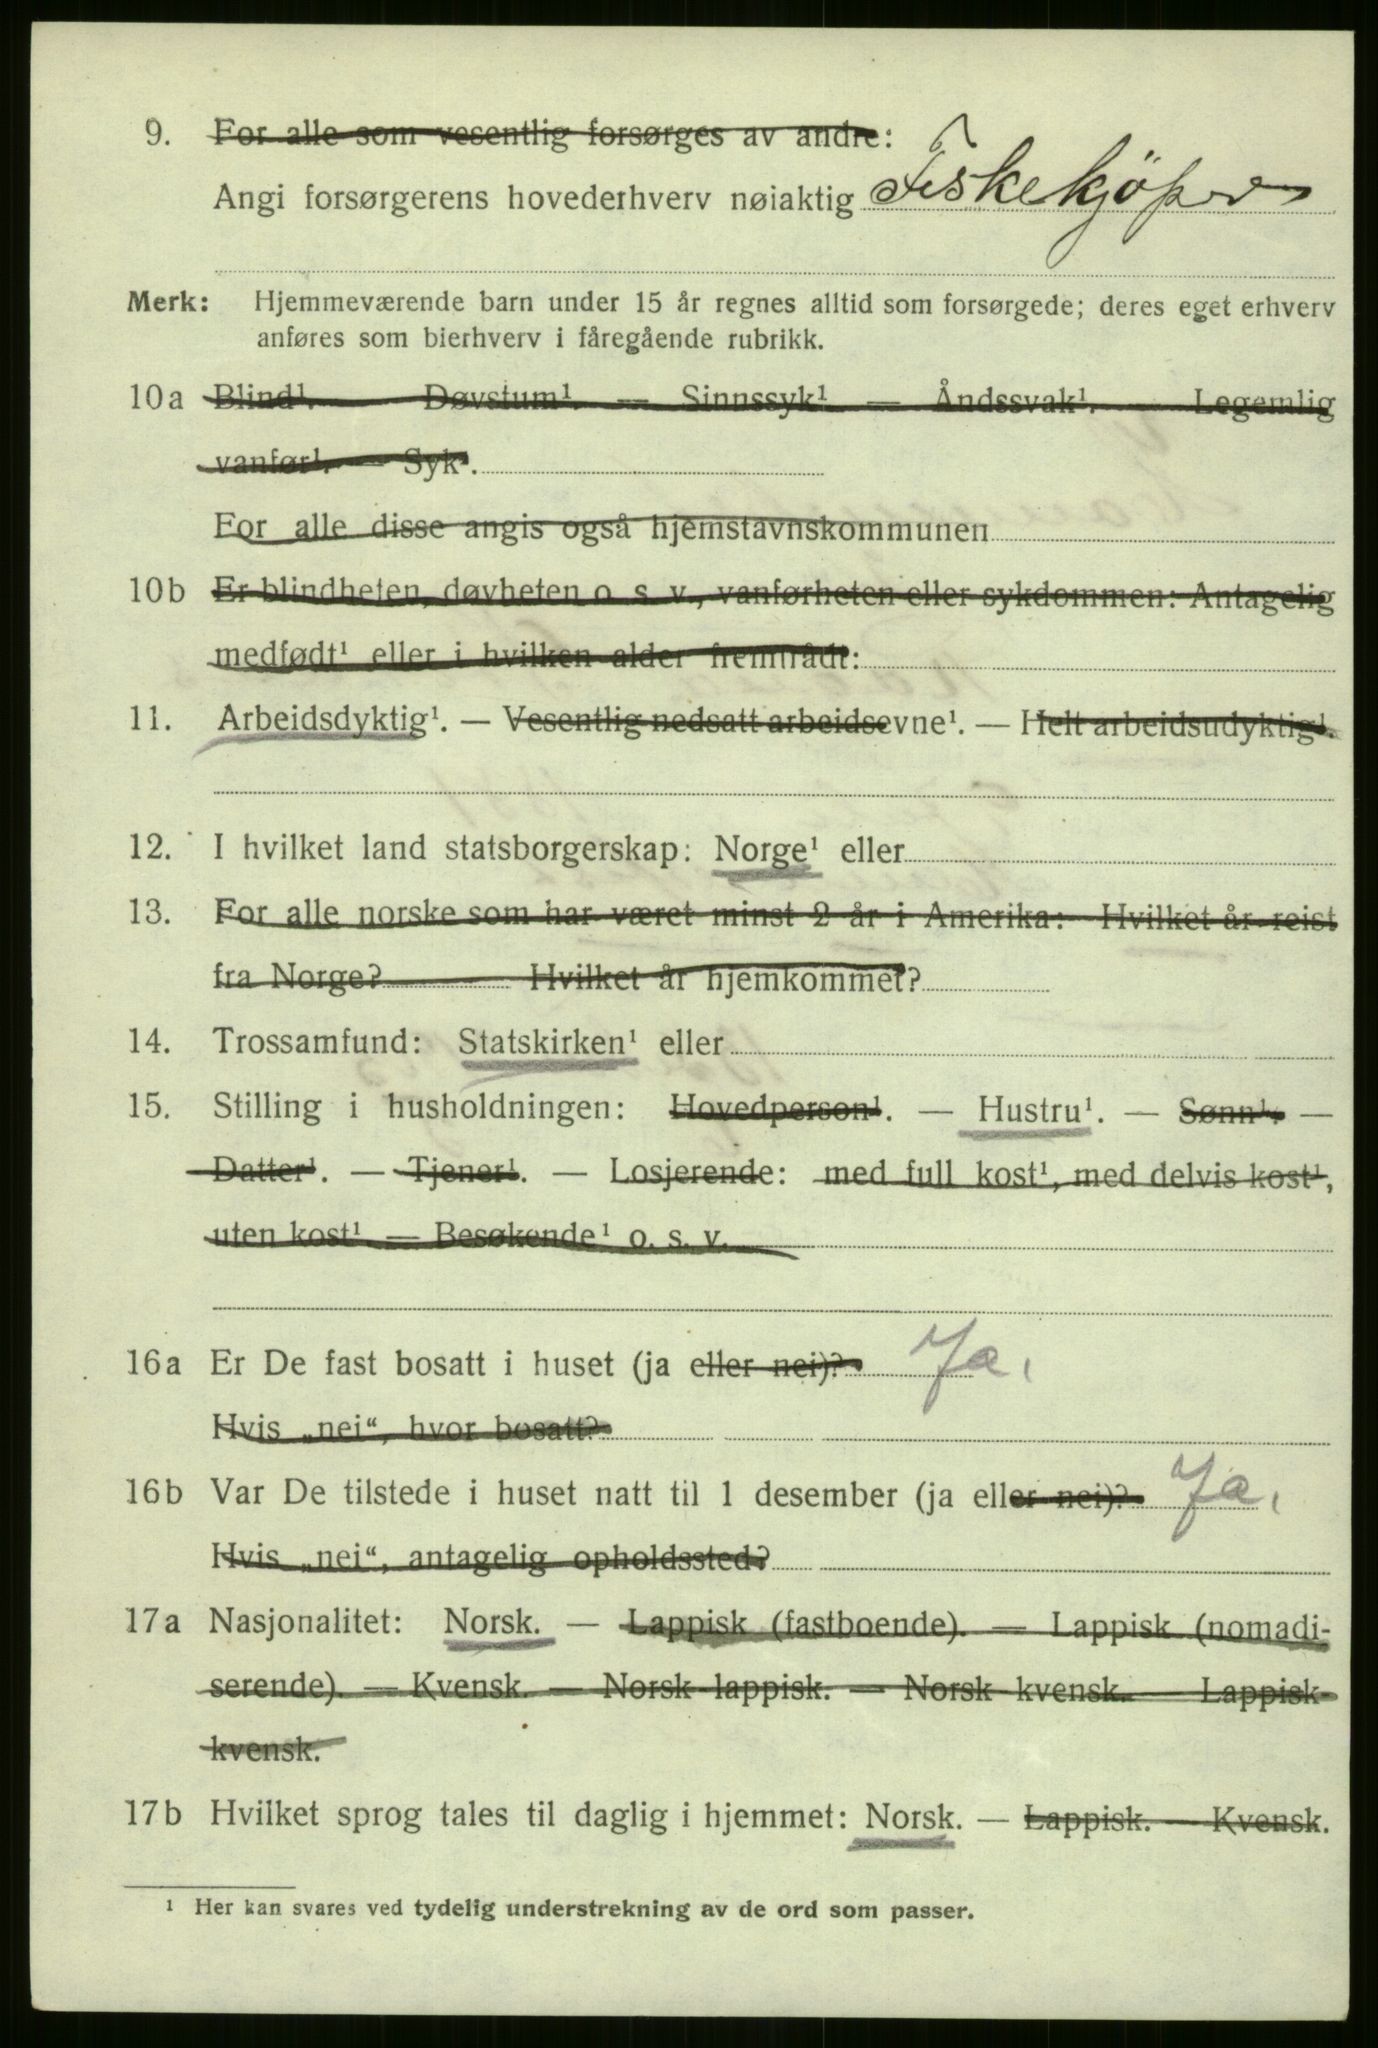 9. For alle som vesentlig forsørges av andre:
Angi forsørgerens hovederhverv nøiaktig Fiskekjöper
Merk: Hjemmeværende barn under 15 år regnes alltid som forsørgede; deres eget erhverv
anføres som bierhverv i fåregående rubrikk.
10a Blind¹. — Døvstum¹. — Sinnssyk¹ — Åndssvak¹. — Legemlig
vanfør¹. — Syk¹.
For alle disse angis også hjemstavnskommunen
10b Er blindheten, døvheten o. s. v., vanførheten eller sykdommen: Antagelig
medfødt¹ eller i hvilken alder fremtrådt:
11. Arbeidsdyktig¹. — Vesentlig nedsatt arbeidsevne¹. — Helt arbeidsudyktig¹.
12. I hvilket land statsborgerskap: Norge¹ eller
13. For alle norske som har været minst 2 år i Amerika: Hvilket år reist
fra Norge? Hvilket år hjemkommet?
14. Trossamfund: Statskirken¹ eller
15. Stilling i husholdningen: Hovedperson¹. — Hustru¹. — Sønn¹. —
Datter¹. — Tjener¹. — Losjerende: med full kost¹, med delvis kost¹,
uten kost¹ — Besøkende¹ o. s. v.
16a Er De fast bosatt i huset (ja eller nei)? Ja,
Hvis „nei“, hvor bosatt?
16b Var De tilstede i huset natt til 1 desember (ja eller nei)? Ja,
Hvis „nei“, antagelig opholdssted?
17a Nasjonalitet: Norsk. — Lappisk (fastboende). — Lappisk (nomadi-
serende). — Kvensk. — Norsk-lappisk. — Norsk-kvensk. — Lappisk-
kvensk.
17b Hvilket sprog tales til daglig i hjemmet: Norsk. — Lappisk. — Kvensk.
¹ Her kan svares ved tydelig understrekning av de ord som passer.